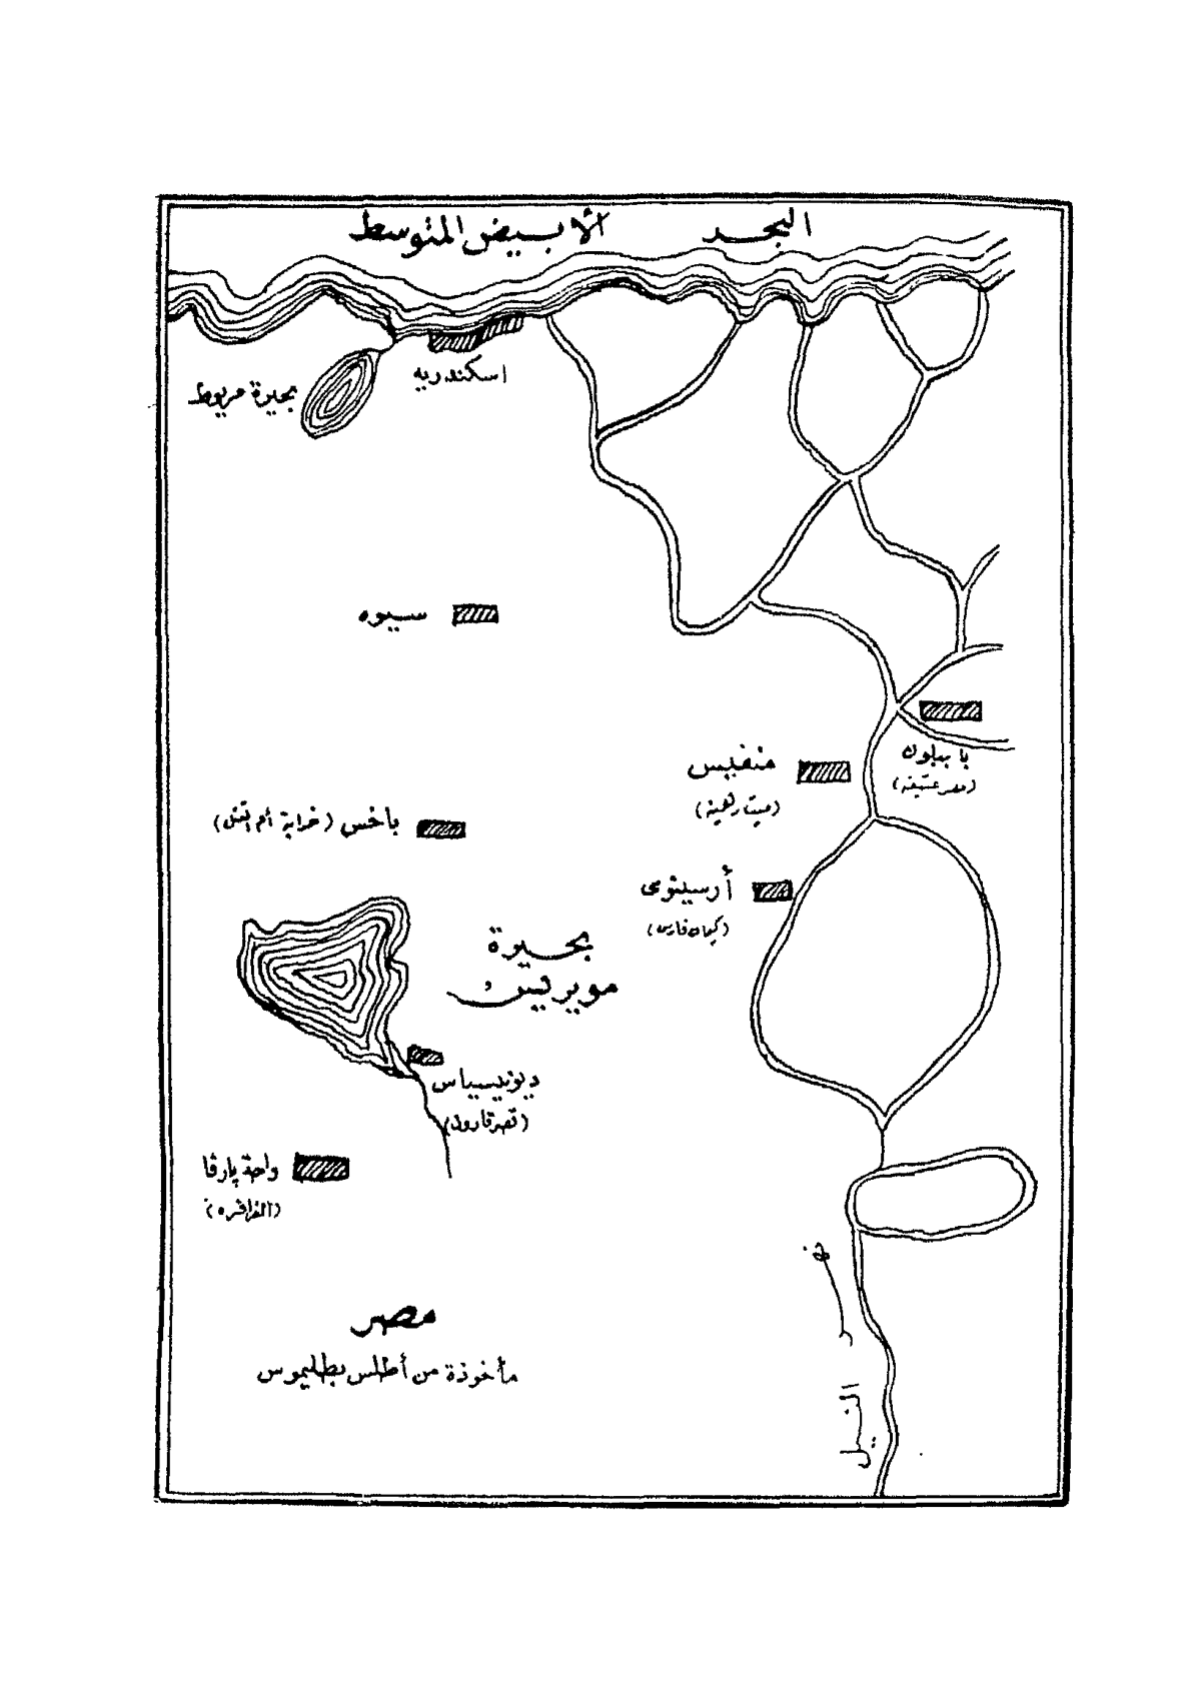 البحر الأبيض المتوسط
اسكندرية
بحيرة مريوط
سيوه
بابيلون
(مصر عتيقه)
منفيس
(ميت رهينة)
باخس (خرابة أم الأتل)
أرسينوى
(كيمان فارس)
بحيرة
مويريس
ديونيسياس
(قصر قارون)
واحة پارڤا
(الفرافره)
نهر النيل
مصر
مأخوذة من أطلس بطليموس